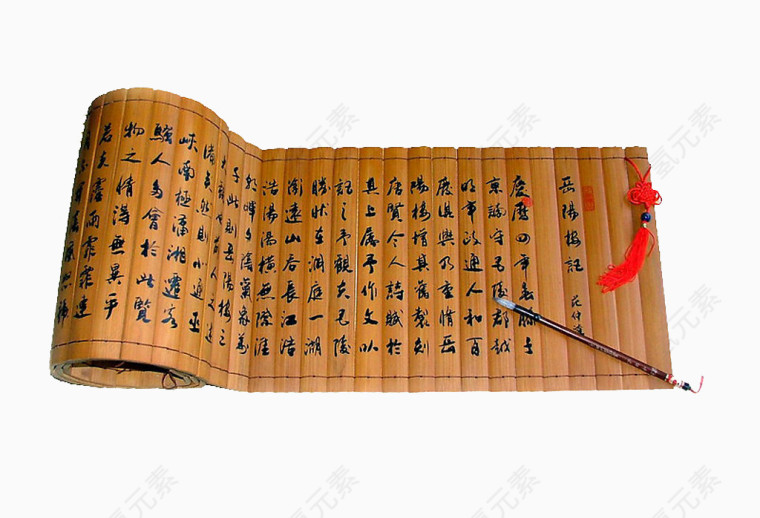 岳陽樓記
范仲淹
慶曆四年春滕子
京謫守巴陵郡越
明年政通人和百
廢俱興乃重脩岳
陽樓增其舊製刻
唐賢今人詩賦於
其上屬予作文以
記之予觀夫巴陵
勝狀在洞庭一湖
銜遠山吞長江浩
浩湯湯橫無際涯
朝暉夕陰氣象萬
千此則岳陽樓之
大觀也前人之述
備矣然則北通巫
峽南極瀟湘遷客
騷人多會於此覽
物之情得無異乎
若夫霪雨霏霏連